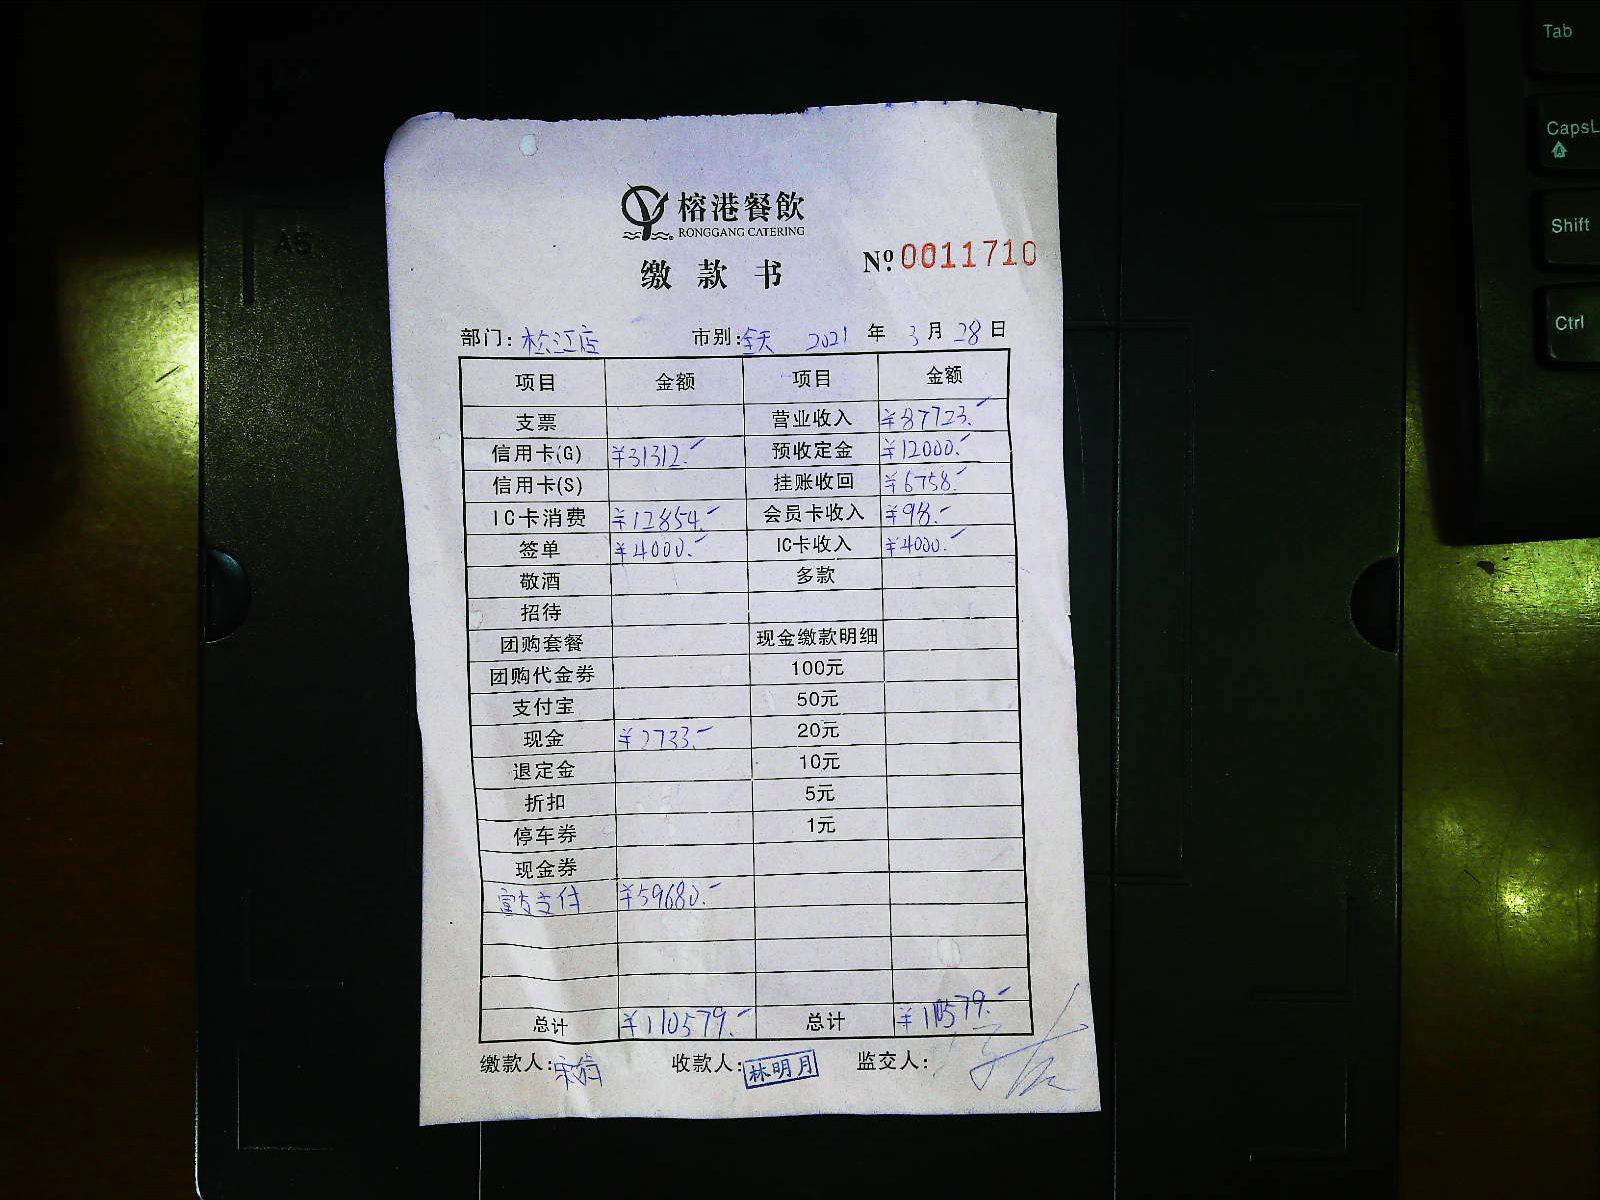 榕港餐飲
RONGGANG CATERING
缴款书
№ 0011710
部门: 松江店 市别: 全天 2021 年 3 月 28 日
项目 金额 项目 金额
支票 营业收入 ¥87723.-
信用卡(G) ¥31312.- 预收定金 ¥12000.-
信用卡(S) 挂账收回 ¥6758.-
IC卡消费 ¥12854.- 会员卡收入 ¥98.-
签单 ¥4000.- IC卡收入 ¥4000.-
敬酒 多款
招待
团购套餐 现金缴款明细
团购代金券 100元
支付宝 50元
现金 ¥2733.- 20元
退定金 10元
折扣 5元
停车券 1元
现金券
富友支付 ¥59680.-
总计 ¥110579.- 总计 ¥110579.-
缴款人: 收款人: 林明月 监交人:
A5
Tab
CapsL
Shift
Ctrl